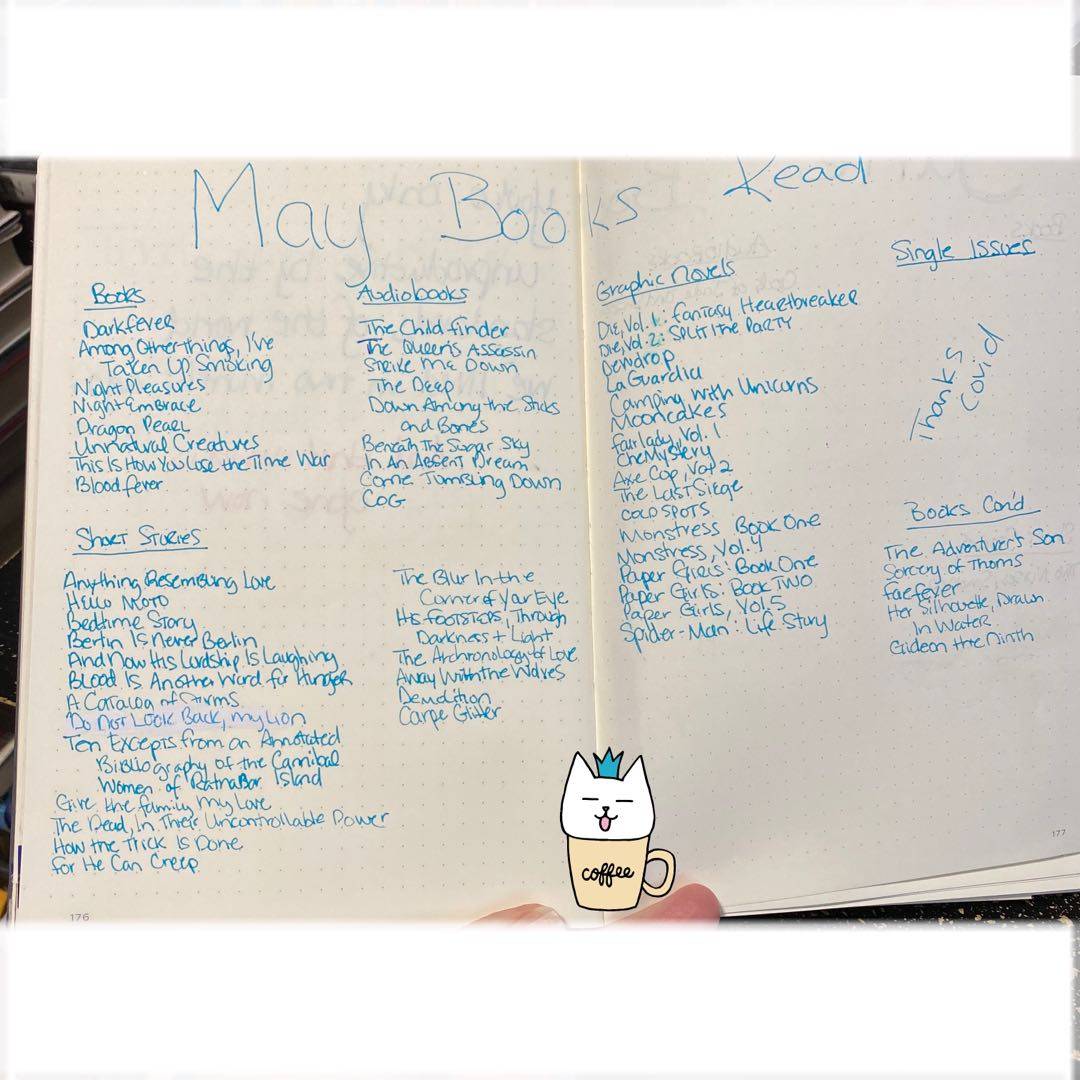 May Books Read
Books
Darkfever
Among Other things, I've
Taken Up Smoking
Night Pleasures
Night Embrace
Dragon Pearl
Unnatural Creatures
This Is How You Lose the Time War
Bloodfever
Audiobooks
The Child Finder
The Queen's Assassin
Strike Me Down
The Deep
Down Among the Sticks
and Bones
Beneath The Sugar Sky
In An Absent Dream
Come Tumbling Down
Cog
Short Stories
Anything Resembling Love
Hello Moto
Bedtime Story
Berlin Is Never Berlin
And Now His Lordship Is Laughing
Blood Is Another Word for Hunger
A Catalog of Storms
Do Not Look Back, my Lion
Ten Excepts from an Annotated
Bibliography of the Cannibal
Women of Ratnabar Island
Give the family my Love
The Dead, In Their Uncontrollable Power
How the Trick Is Done
For He Can Creep
The Blur In the
Corner of Your Eye
His Footsteps, Through
Darkness + Light
The Archronology of Love
Away With the Wolves
Demolition
Carpe Glitter
176
Graphic Novels
Die, Vol. 1: Fantasy Heartbreaker
Die, Vol. 2: Split the Party
Dewdrop
LaGuardia
Camping with Unicorns
Mooncakes
Fairlady, Vol. 1
Chemystery
Axe Cop, Vol. 2
The Last Siege
Cold Spots
Monstress Book One
Monstress, Vol. 4
Paper Girls: Book One
Paper Girls: Book Two
Paper Girls, Vol. 5
Spider-Man: Life Story
Single Issues
Thanks
Covid
Books Con'd
The Adventurer's Son
Sorcery of Thorns
Faefever
Her Silhouette, Drawn
In Water
Gideon the Ninth
177
coffee